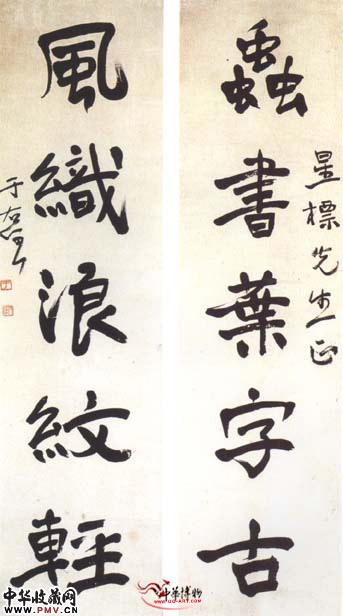 星標先生正
蟲書葉字古
風織浪紋輕
于右任
中华博物
www.gg-art.com
中华收藏网
www.PMV.CN